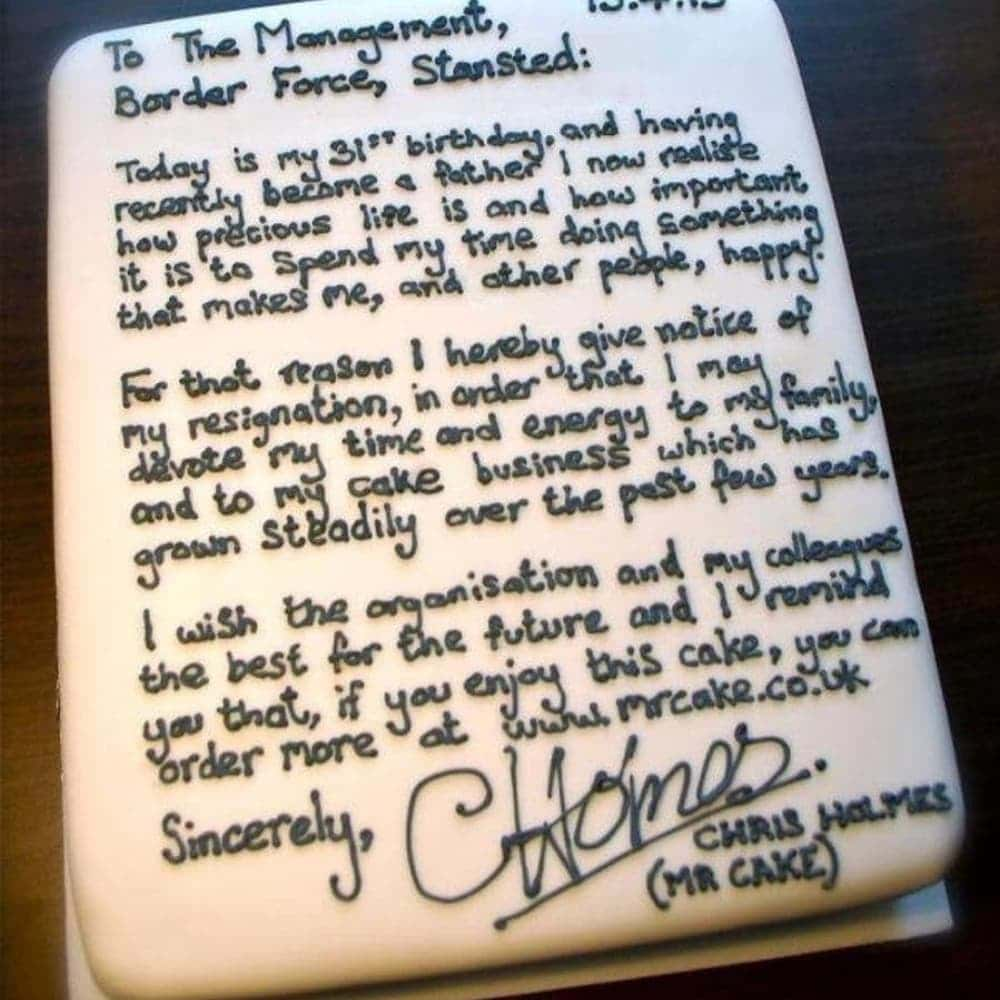 To The Management,
Border Force, Stansted:
Today is my 31ST birthday, and having
recently become a father I now realise
how precious life is and how important
it is to spend my time doing something
that makes me, and other people, happy.
For that reason I hereby give notice of
my resignation, in order that I may
devote my time and energy to my family,
and to my cake business which has
grown steadily over the past few years.
I wish the organisation and my colleagues
the best for the future and I remind
you that, if you enjoy this cake, you can
order more at www.mrcake.co.uk
Sincerely, CHolmes.
CHRIS HOLMES
(MR CAKE)